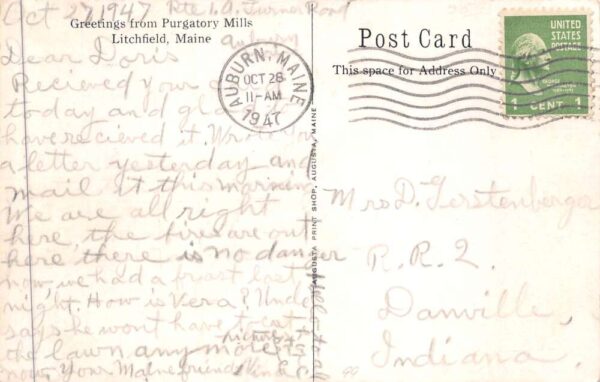 Oct 27 1947 Rte 1. A. Turner Road
Auburn
Greetings from Purgatory Mills
Litchfield, Maine
Dear Doris
Recieved your
today and glad to
have recieved it. Wrote you
a letter yesterday and
mail it this morning
We are all right
here, the fires are out
here there is no danger
now, we had a frost last
night. How is Vera?
says he won't have to cut
the lawn any more
now, Your Maine friend
AUBURN, MAINE
OCT 28
11-AM
1947
AUGUSTA PRINT SHOP, AUGUSTA, MAINE
Post Card
This space for Address Only
UNITED
STATES
POSTAGE
GEORGE
WASHINGTON
1 CENT 1
Mrs D. Gerstenberger
R.R. 2.
Danville,
Indiana.